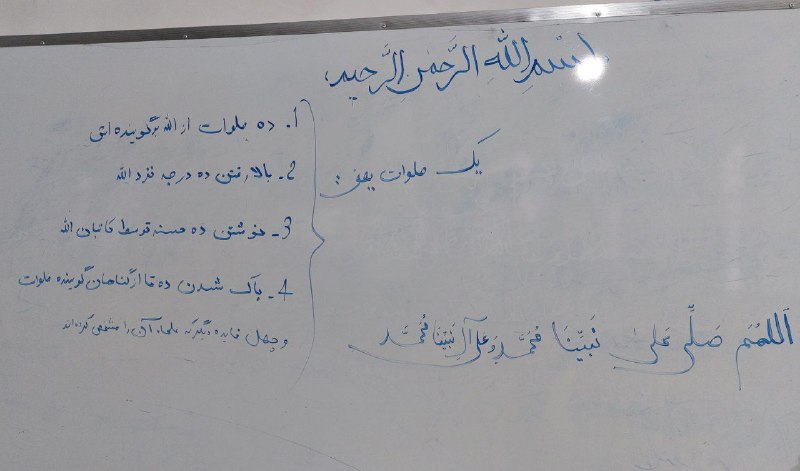 بِسْمِ اللهِ الرَّحمٰنِ الرَّحیم
یک صلوات یعنی:
1. ده صلوات از الله بر گوینده اش
2- بالا رفتن ده درجه نزد الله
3- نوشتن ده حسنه توسط کاتبان الله
4- پاک شدن ده تا از گناهان گوینده صلوات
و چهل فایده دیگر که علماء آن را مشخص کرده اند
اَللهُمَّ صَلِّی عَلیٰ نَبیِّنَا مُحَمَّدٍ وَ عَلی آلِ نَبیِّنَا مُحَمَّد